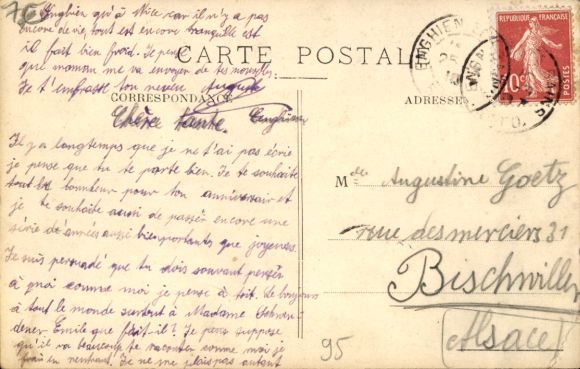 7C
Enghien qu'à Nice car il n'y a pas
encore de vie, tout est encore tranquille est
il fait bien froid. Je pense
que maman me va envoyer de te nouvelles
Je t'embrasse ton neveu Auguste
CARTE POSTALE
CORRESPONDANCE
ADRESSE
REPUBLIQUE FRANÇAISE
10c
POSTES
ENGHIEN
Chère tante. Enghien
Il y a longtemps que je ne t'ai pas écrie
je pense que tu te porte bien. Je te souhaite
tout le bonheur pour ton anniversair et
je te souhaite aussi de passer encore une
série de années aussi bien portants que joyeuses.
Je suis persuadé que tu dois souvant penser
à moi comme moi je pense à toit. Le bonjour
à tout le monde surtout à Madame
Emile que fait-il? Je suppose
qu'il va beaucoup te raconter comme moi je
en rentrant. Je ne me plais pas autant
Mlle Augustine Goetz
rue des merciers 31
Bischwiller
Alsace
95